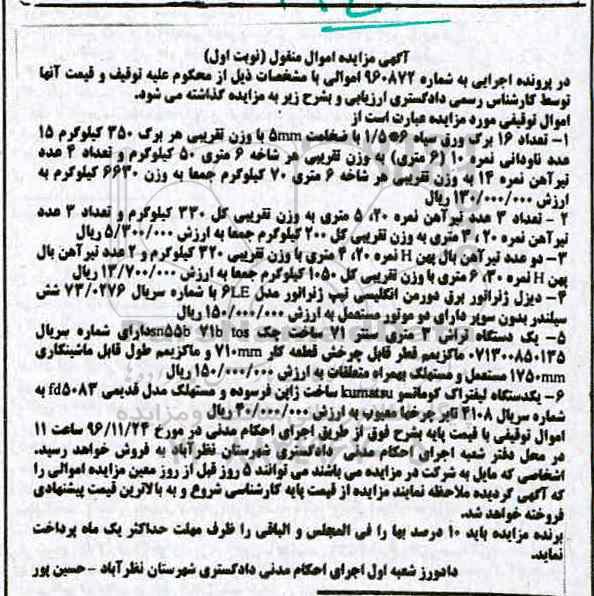 آگهی مزایده اموال منقول (نوبت اول)
در پرونده اجرایی به شماره ۹۶۰۸۷۲ اموالی با مشخصات ذیل از محکوم علیه توقیف و قیمت آنها
توسط کارشناس رسمی دادگستری ارزیابی و بشرح زیر به مزایده گذاشته می شود.
اموال توقیفی مورد مزایده عبارت است از
۱- تعداد ۱۶ برگ ورق سیاه ۶*۱/۵ با ضخامت ۵mm با وزن تقریبی هر برگ ۳۵۰ کیلوگرم ۱۵
عدد ناودانی نمره ۱۰ (۶ متری) به وزن تقریبی هر شاخه ۶ متری ۵۰ کیلوگرم و تعداد ۴ عدد
تیرآهن نمره ۱۴ به وزن تقریبی هر شاخه ۶ متری ۷۰ کیلوگرم جمعا به وزن ۶۶۳۰ کیلوگرم به
ارزش ۱۳۰/۰۰۰/۰۰۰ ریال
۲ - تعداد ۳ عدد تیرآهن نمره ۲۰، ۵ متری به وزن تقریبی کل ۳۳۰ کیلوگرم و تعداد ۳ عدد
تیرآهن نمره ۲۰، ۳ متری به وزن تقریبی کل ۲۰۰ کیلوگرم جمعا به ارزش ۵/۳۰۰/۰۰۰ ریال
۳- دو عدد تیرآهن بال پهن H نمره ۲۰، ۴ متری با وزن تقریبی ۳۲۰ کیلوگرم و ۲ عدد تیرآهن بال
پهن H نمره ۳۰، ۶ متری با وزن تقریبی کل ۱۰۵۰ کیلوگرم جمعا به ارزش ۱۳/۷۰۰/۰۰۰ ریال
۴- دیزل ژنراتور برق دورمن انگلیسی تیپ ژنراتور مدل ۶LE با شماره سریال ۷۳/۰۲۷۶ شش
سیلندر بدون سوپر دارای دو موتور مستعمل به ارزش ۱۵۰/۰۰۰/۰۰۰ ریال
۵- یک دستگاه تراش ۳ متری سنتر ۷۱ ساخت چک sn۵۵b ۷۱b tosدارای شماره سریال
۰۷۱۳۰۰۸۵۰۱۳۵ ماکزیمم قطر قابل چرخش قطعه کار ۷۱۰mm و ماکزیمم طول قابل ماشینکاری
۱۷۵۰mm مستعمل و مستهلک بهمراه متعلقات به ارزش ۱۵۰/۰۰۰/۰۰۰ ریال
۶- یکدستگاه لیفتراک کوماتسو kumatsu ساخت ژاپن فرسوده و مستهلک مدل قدیمی fd۵۰۸۳ به
شماره سریال ۴۱۰۸ تایر چرخها معیوب به ارزش ۴۰/۰۰۰/۰۰۰ ریال
اموال توقیفی با قیمت پایه بشرح فوق از طریق اجرای احکام مدنی در مورخ ۹۶/۱۱/۲۴ ساعت ۱۱
در محل دفتر شعبه اجرای احکام مدنی دادگستری شهرستان نظرآباد به فروش خواهد رسید.
اشخاصی که مایل به شرکت در مزایده می باشند می توانند ۵ روز قبل از روز معین مزایده اموالی را
که آگهی گردیده ملاحظه نمایند مزایده از قیمت پایه کارشناسی شروع و به بالاترین قیمت پیشنهادی
فروخته خواهد شد.
برنده مزایده باید ۱۰ درصد بها را فی المجلس و الباقی را ظرف مهلت حداکثر یک ماه پرداخت
نماید.
دادورز شعبه اول اجرای احکام مدنی دادگستری شهرستان نظرآباد - حسین پور